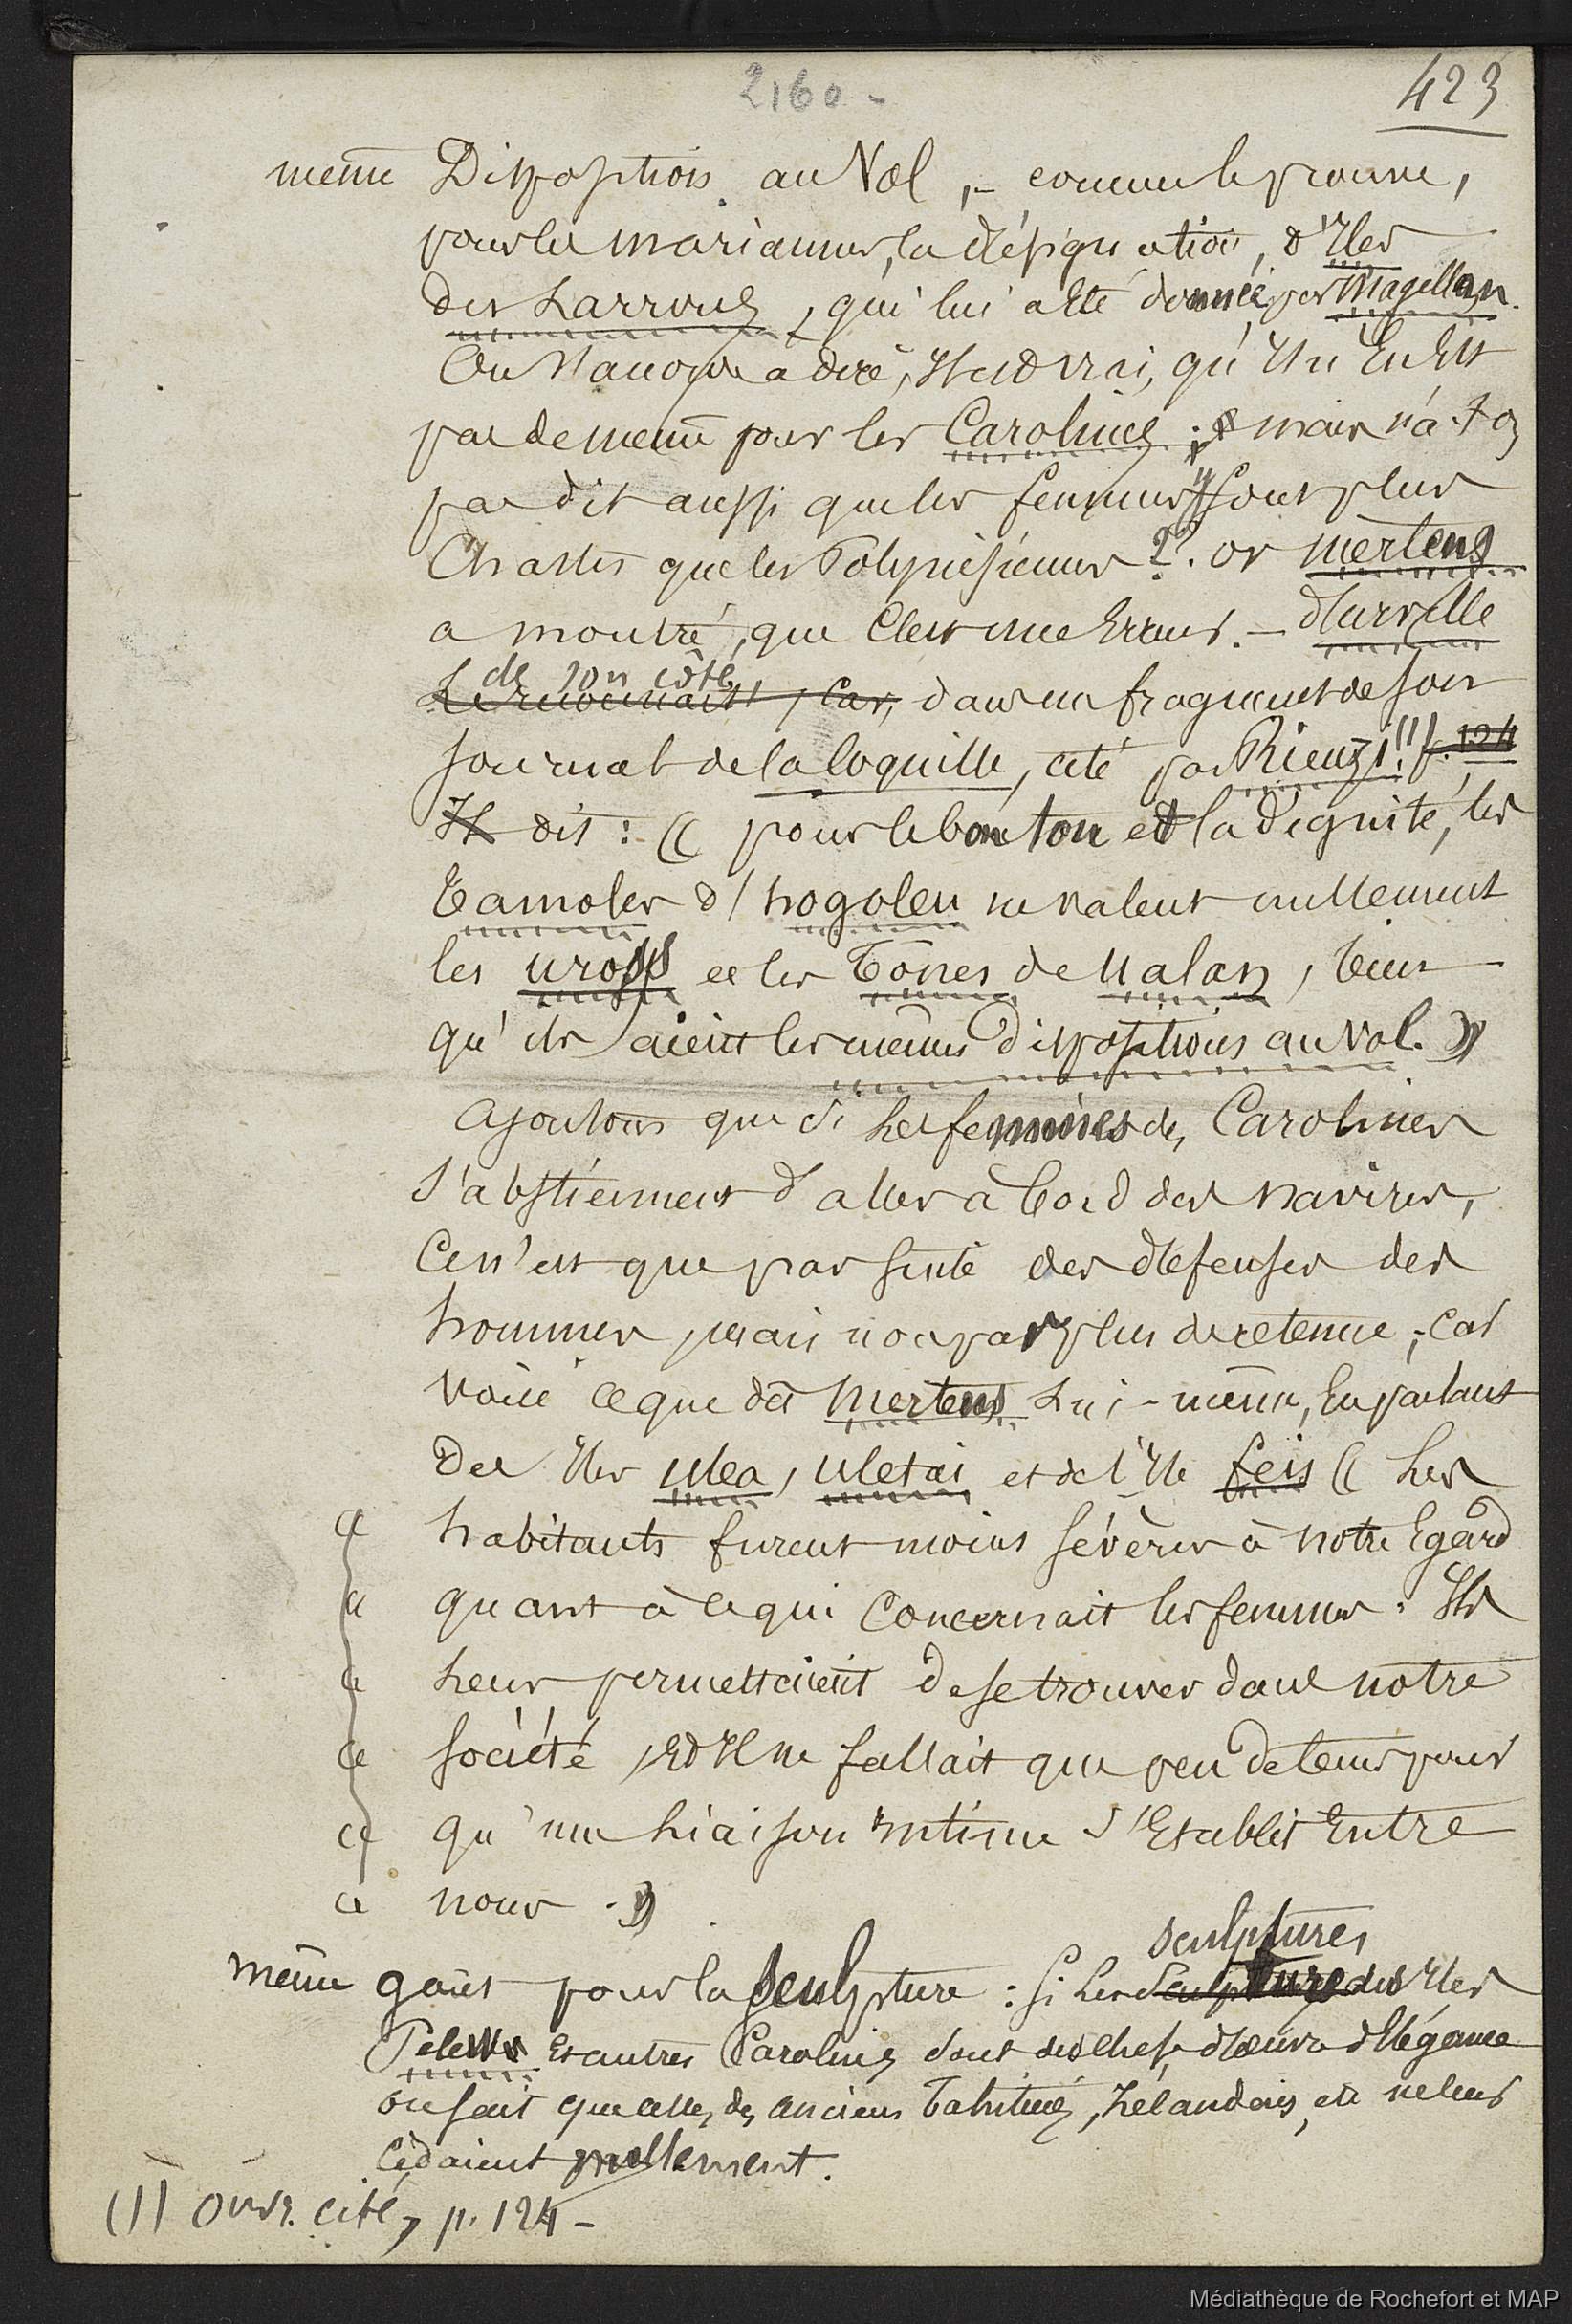 2160 -
423
même Dispositions au Vol, - comme le prouve,
pour les mariannes, la désignation, d'Iles
des Larrons, qui lui a été donnée par Magellan.
On a dire, Il est vrai, qu'Il n'En Est
pas de même pour les Carolines ; mais n'a-t-on
pas dit aussi que les femmes y sont plus
Chastes que les Polynésiennes ??. or mertens
a montré, que C'est une Erreur. - d'urville
de son côté
, Car, dans un fragment de son
journal de la Coquille, cité par Rienzi (1) p. 124
Il dit : (( pour le bon ton et la dignité, les
Tamoles d'hogoleu ne valent nullement
les uross et les Tônes de Ualan, bien
qu'ils aient les mêmes dispositions au Vol. ))
ajoutons que si Les femmes des Carolines
s'abstiennent d'aller à bord des navires,
Ce n'est que par suite des défenses des
hommes, mais non par plus de retenue ; car
voici ce que dit Mertens Lui-même, En parlant
des Iles ulea, uletai et de l'Ile feis (( Les
(( habitants furent moins sévères à notre Egard
(( quant à ce qui Concernait les femmes : Ils
(( Leur permettaient de se trouver dans notre
(( société, Et Il ne fallait que peu de tems pour
(( qu'une Liaison Intime s'Etablit Entre
(( nous. ))
sculptures
même goût pour la Sculpture : si Les sculptures des Iles
Pelew Et autres Carolines sont des chefs d'œuvre d'Elégance
on sait que celles des anciens Tahitiens, Zélandais, etc ne leur
Cédaient nullement.
(1) Ouvr. cité, p. 124 -
Médiathèque de Rochefort et MAP